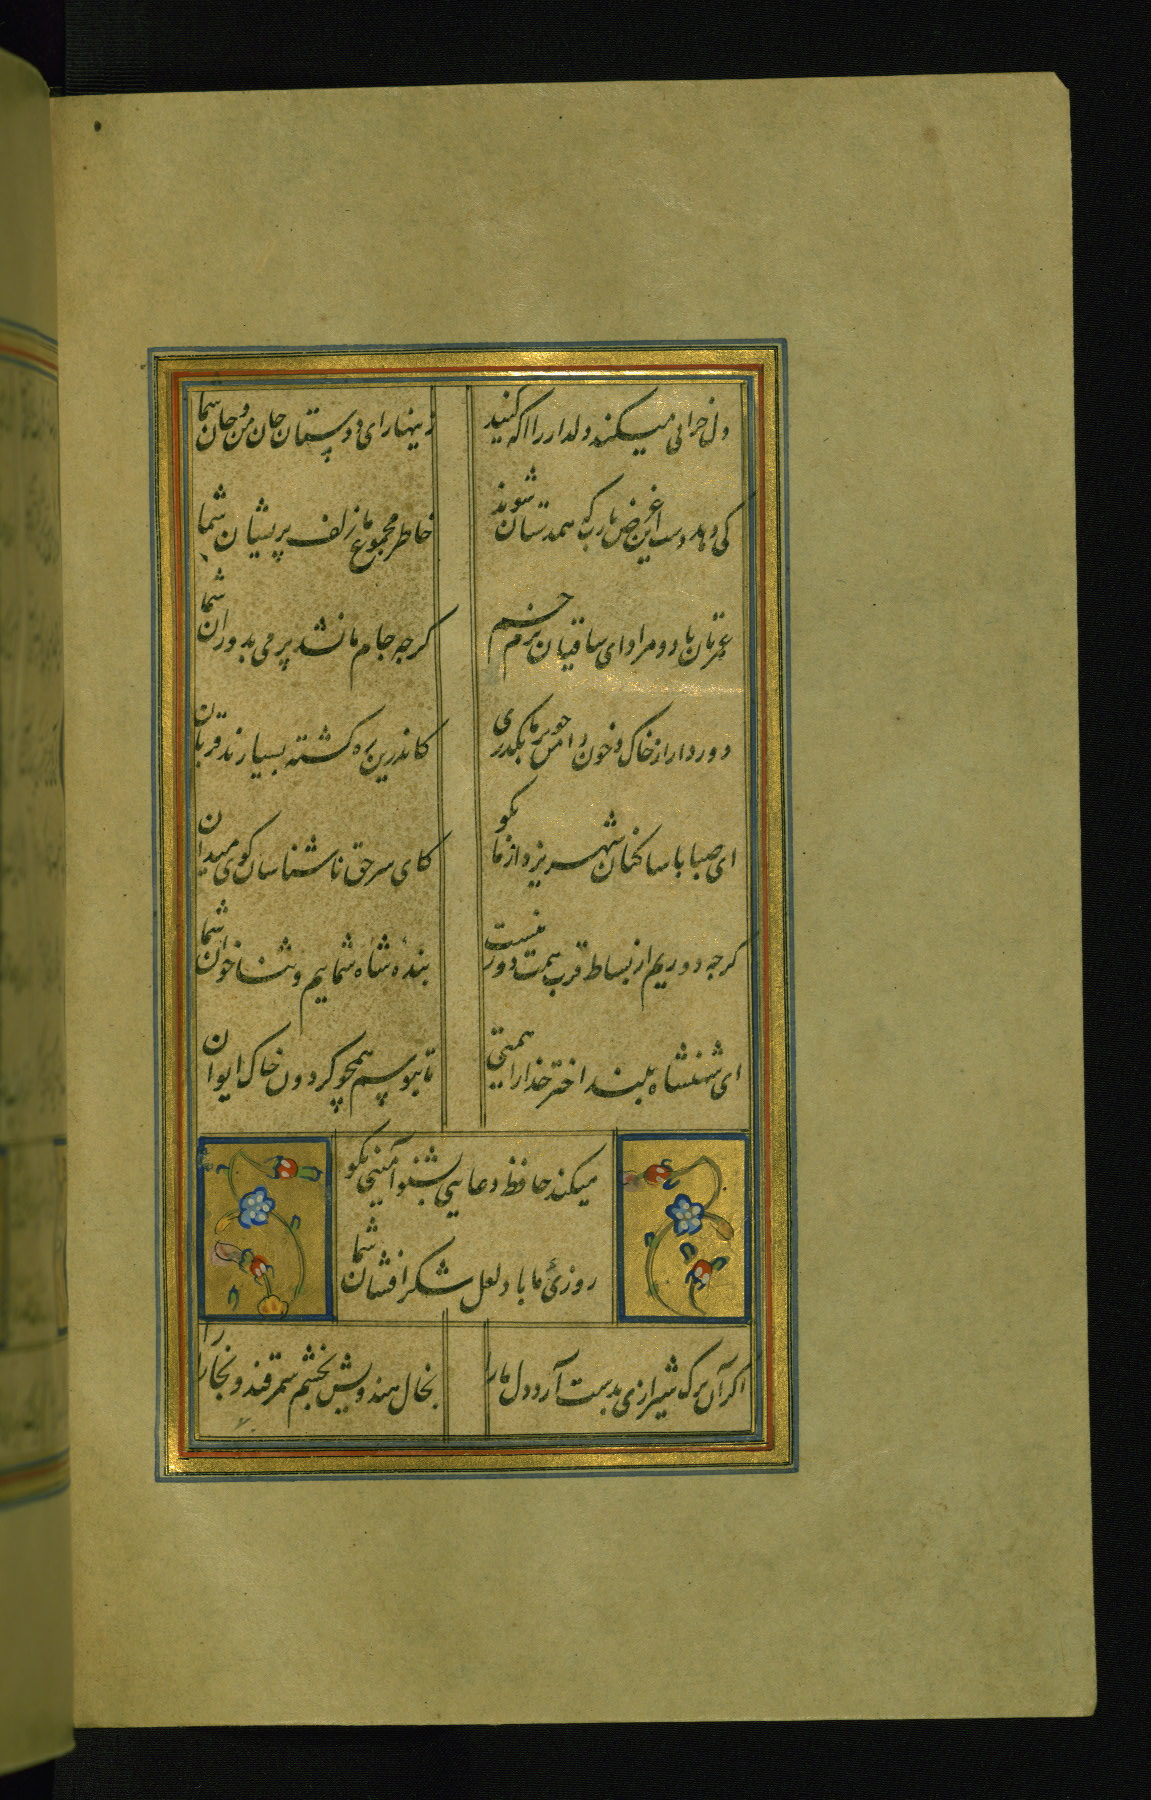 دل خرابی میکند دلدار را اکه کنید
زینهار ای دوستان جان من و جان شما
کی دهد دست این غرض یا رب که همدستان شوند
خاطر مجموع ما زلف پریشان شما
عمرتان بادو مراد ای ساقیان بزم جم
کرچه جام ما نشد پر می بدوران شما
دور دار از خاک و خون دامن چو بر ما بکذری
کاندرین ره کشته بسیارند قربان
ای صبا با ساکنان شهر یزد از ما بکو
کای سر حق ناشناسان کوی میدان
کرچه دوریم از بساط قرب همت دور نیست
بندهٔ شاه شماییم و ثناخوان شما
ای شهنشاه بلند اختر خدا را همتی
تا ببوسم همچو کردون خاک ایوان
میکند حافظ دعایی بشنو آمینی بکو
روزیٔ ما باد لعل شکر افشان شما
اکر آن ترک شیرازی بدست آرد دل ما را
بخال هندویش بخشم سمرقند و بخارا را